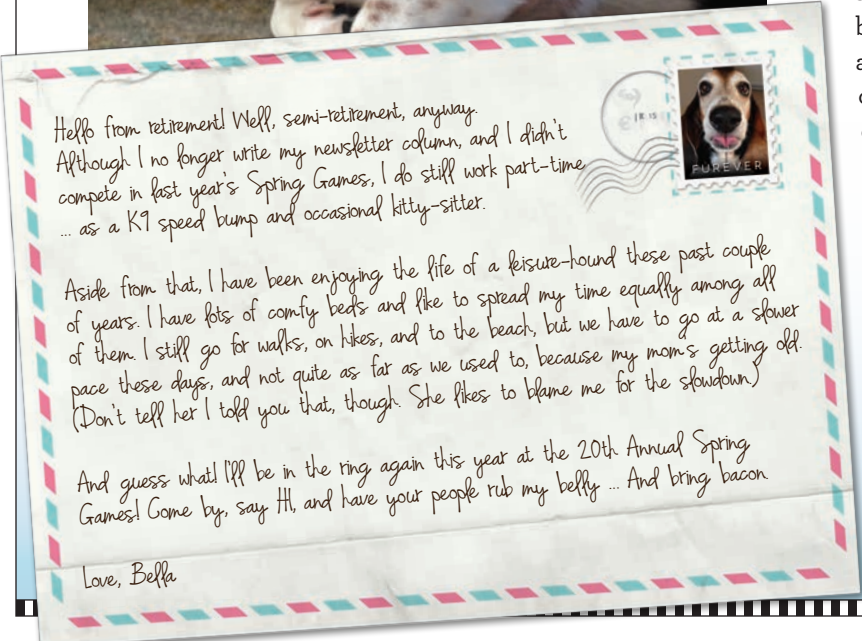 Hello from retirement! Well, semi-retirement, anyway.
Although I no longer write my newsletter column, and I didn't
compete in last year's Spring Games, I do still work part-time
... as a K9 speed bump and occasional kitty-sitter.
FUREVER
Aside from that, I have been enjoying the life of a leisure-hound these past couple
of years. I have lots of comfy beds and like to spread my time equally among all
of them. I still go for walks, on hikes, and to the beach, but we have to go at a slower
pace these days, and not quite as far as we used to, because my mom's getting old.
(Don't tell her I told you that, though. She likes to blame me for the slowdown.)
And guess what! I'll be in the ring again this year at the 20th Annual Spring
Games! Come by, say HI, and have your people rub my belly ... And bring bacon.
Love, Bella